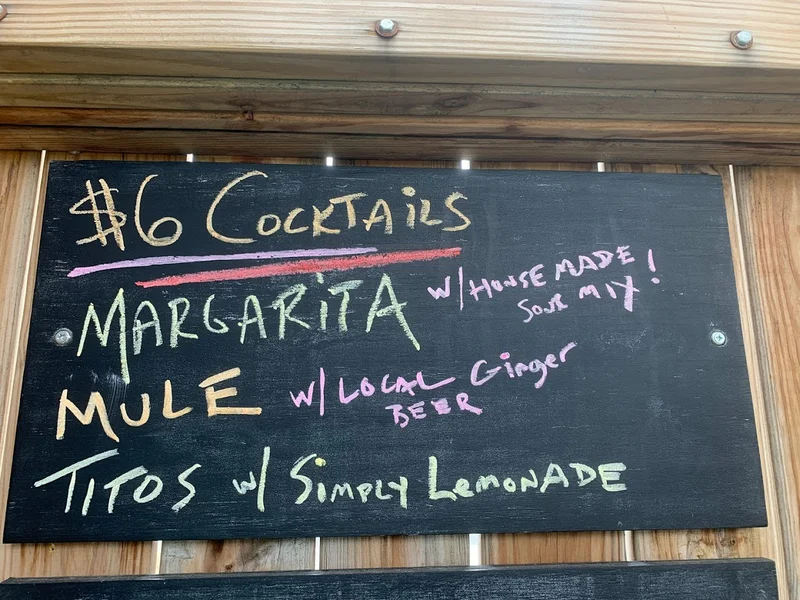 $6 COCKTAiLS
MARGARiTA w/ HOUSE MADE
SOUR MIX!
MULE w/ LOCAL Ginger
BEER
TITOS w/ Simply LemONADE